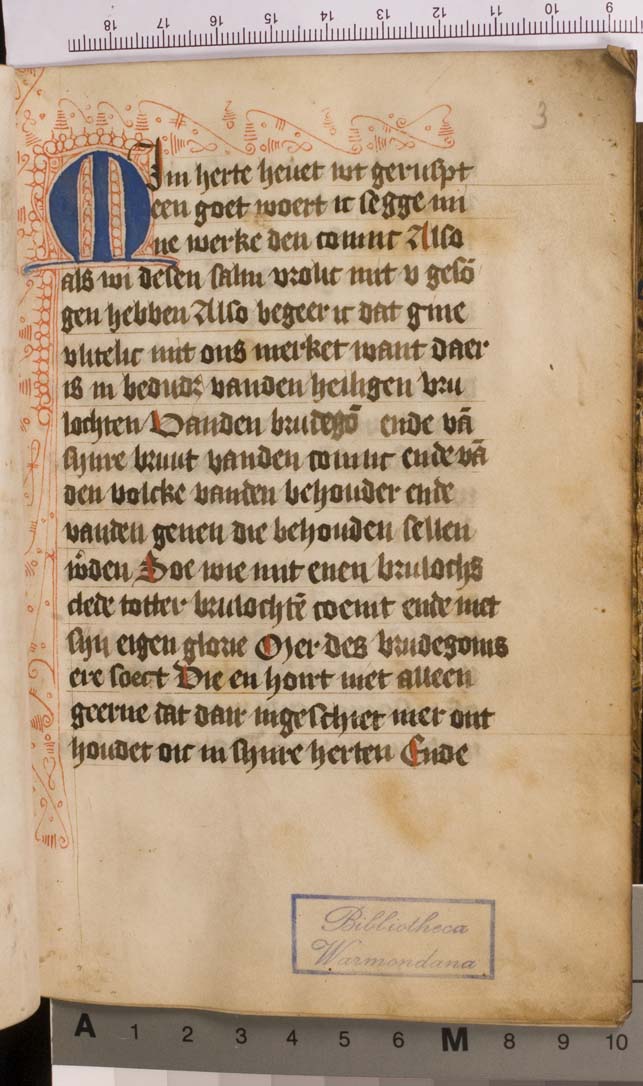 3
MIin herte heuet wt gerupst
een goet woert ic segge mi
ne werke den coninc Also
als wi desen salm vrolic mit v gesō
gen hebben Also begeer ic dat gine
vlitelic mit ons merket want daer
is in bedudz vanden heiligen bru
lochten Vanden brudegō ende vā
sijnre bruut vanden coninc ende vā
den volcke vanden behouder ende
vanden genen die behouden sellen
wͦden Soe wie mit enen brulochs
clede totter brulochtē coemt ende niet
sijn eigen glorie Mer des brudegoms
ere soect Die en hoirt niet alleen
geerne dat dair ingeschiet mer ont
houdet oic in sijnre herten Ende
Bibliotheca
Warmondana